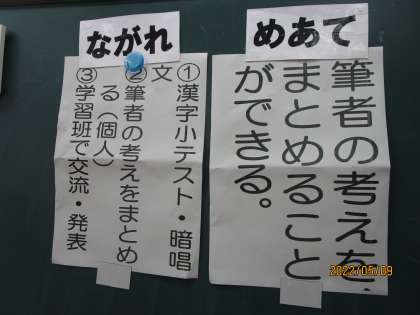 めあて
筆者の考えを、
まとめること
ができる。
ながれ
①漢字小テスト・暗唱
文
②筆者の考えをまとめ
る（個人）
③学習班で交流・発表
2022/05/09